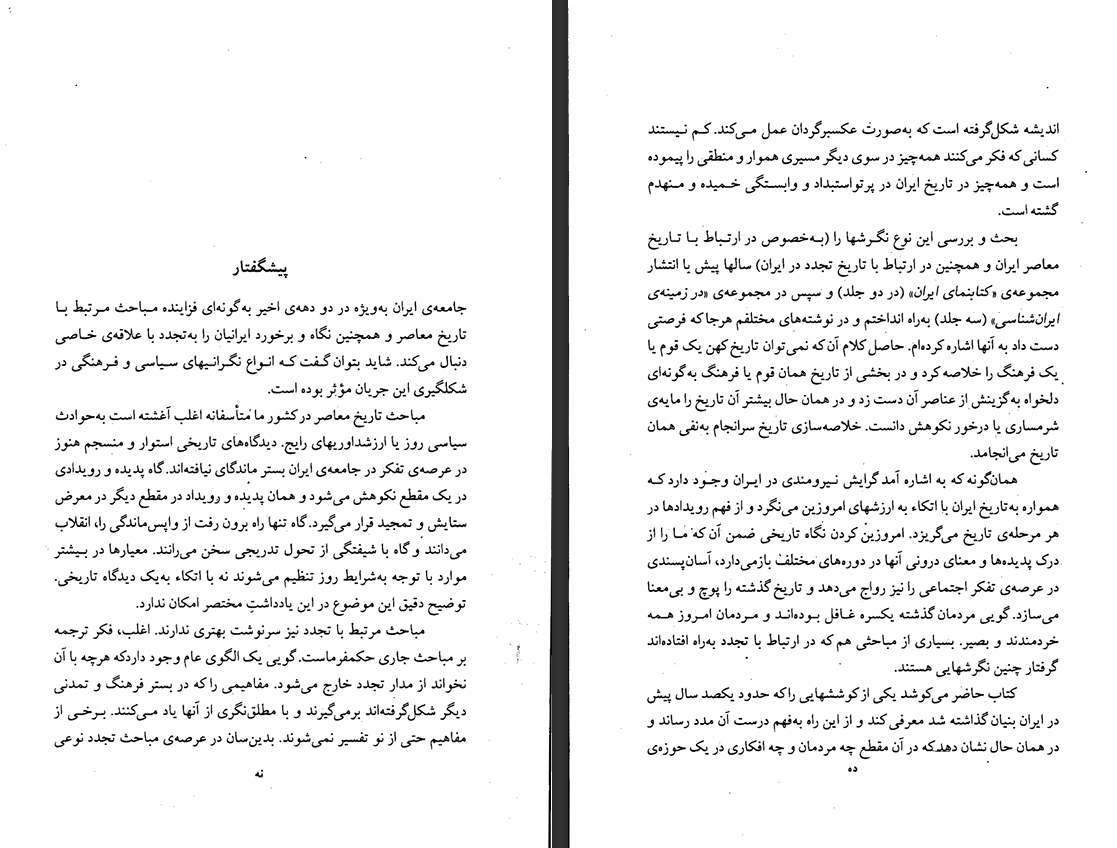 پیشگفتار
جامعه‌ی ایران به‌ویژه در دو دهه‌ی اخیر به‌گونه‌ای فزاینده مباحث مرتبط با
تاریخ معاصر و همچنین نگاه و برخورد ایرانیان را به‌تجدد با علاقه‌ی خاصی
دنبال می‌کند. شاید بتوان گفت که انواع نگرانیهای سیاسی و فرهنگی در
شکلگیری این جریان مؤثر بوده است.
مباحث تاریخ معاصر در کشور ما متأسفانه اغلب آغشته است به‌حوادث
سیاسی روز یا ارزشداوریهای رایج. دیدگاه‌های تاریخی استوار و منسجم هنوز
در عرصه‌ی تفکر در جامعه‌ی ایران بستر ماندگای نیافته‌اند. گاه پدیده و رویدادی
در یک مقطع نکوهش می‌شود و همان پدیده و رویداد در مقطع دیگر در معرض
ستایش و تمجید قرار می‌گیرد. گاه تنها راه برون رفت از واپس‌ماندگی را، انقلاب
می‌دانند و گاه با شیفتگی از تحول تدریجی سخن می‌رانند. معیارها در بیشتر
موارد با توجه به‌شرایط روز تنظیم می‌شوند نه با اتکاء به‌یک دیدگاه تاریخی.
توضیح دقیق این موضوع در این یادداشتِ مختصر امکان ندارد.
مباحث مرتبط با تجدد نیز سرنوشت بهتری ندارند. اغلب، فکر ترجمه
بر مباحث جاری حکمفرماست. گویی یک الگوی عام وجود دارد که هرچه با آن
نخواند از مدار تجدد خارج می‌شود. مفاهیمی را که در بستر فرهنگ و تمدنی
دیگر شکل‌گرفته‌اند برمی‌گیرند و با مطلق‌نگری از آنها یاد می‌کنند. برخی از
مفاهیم حتی از نو تفسیر نمی‌شوند. بدین‌سان در عرصه‌ی مباحث تجدد نوعی
نه
اندیشه شکل‌گرفته است که به‌صورت عکسبرگردان عمل می‌کند. کم نیستند
کسانی که فکر می‌کنند همه‌چیز در سوی دیگر مسیری هموار و منطقی را پیموده
است و همه‌چیز در تاریخ ایران در پرتو استبداد و وابستگی خمیده و منهدم
گشته است.
بحث و بررسی این نوع نگرشها را (به‌خصوص در ارتباط با تاریخ
معاصر ایران و همچنین در ارتباط با تاریخ تجدد در ایران) سالها پیش با انتشار
مجموعه‌ی «کتابنمای ایران» (در دو جلد) و سپس در مجموعه‌ی «در زمینه‌ی
ایران‌شناسی» (سه جلد) به‌راه انداختم و در نوشته‌های مختلفم هرجا که فرصتی
دست داد به آنها اشاره کرده‌ام. حاصل کلام آن که نمی‌توان تاریخ کهن یک قوم یا
یک فرهنگ را خلاصه کرد و در بخشی از تاریخ همان قوم یا فرهنگ به‌گونه‌ای
دلخواه به‌گزینش از عناصر آن دست زد و در همان حال بیشتر آن تاریخ را مایه‌ی
شرمساری یا درخور نکوهش دانست. خلاصه‌سازی تاریخ سرانجام به‌نفی همان
تاریخ می‌انجامد.
همان‌گونه که به اشاره آمد گرایش نیرومندی در ایران وجود دارد که
همواره به‌تاریخ ایران با اتکاء به ارزشهای امروزین می‌نگرد و از فهم رویدادها در
هر مرحله‌ی تاریخ می‌گریزد. امروزین کردن نگاه تاریخی ضمن آن که ما را از
درک پدیده‌ها و معنای درونی آنها در دوره‌های مختلف بازمی‌دارد، آسان‌پسندی
در عرصه‌ی تفکر اجتماعی را نیز رواج می‌دهد و تاریخ گذشته را پوچ و بی‌معنا
می‌سازد. گویی مردمان گذشته یکسره غافل بوده‌اند و مردمان امروز همه
خردمندند و بصیر. بسیاری از مباحثی هم که در ارتباط با تجدد به‌راه افتاده‌اند
گرفتار چنین نگرشهایی هستند.
کتاب حاضر می‌کوشد یکی از کوششهایی را که حدود یکصد سال پیش
در ایران بنیان گذاشته شد معرفی کند و از این راه به‌فهم درست آن مدد رساند و
در همان حال نشان دهد که در آن مقطع چه مردمان و چه افکاری در یک حوزه‌ی
ده